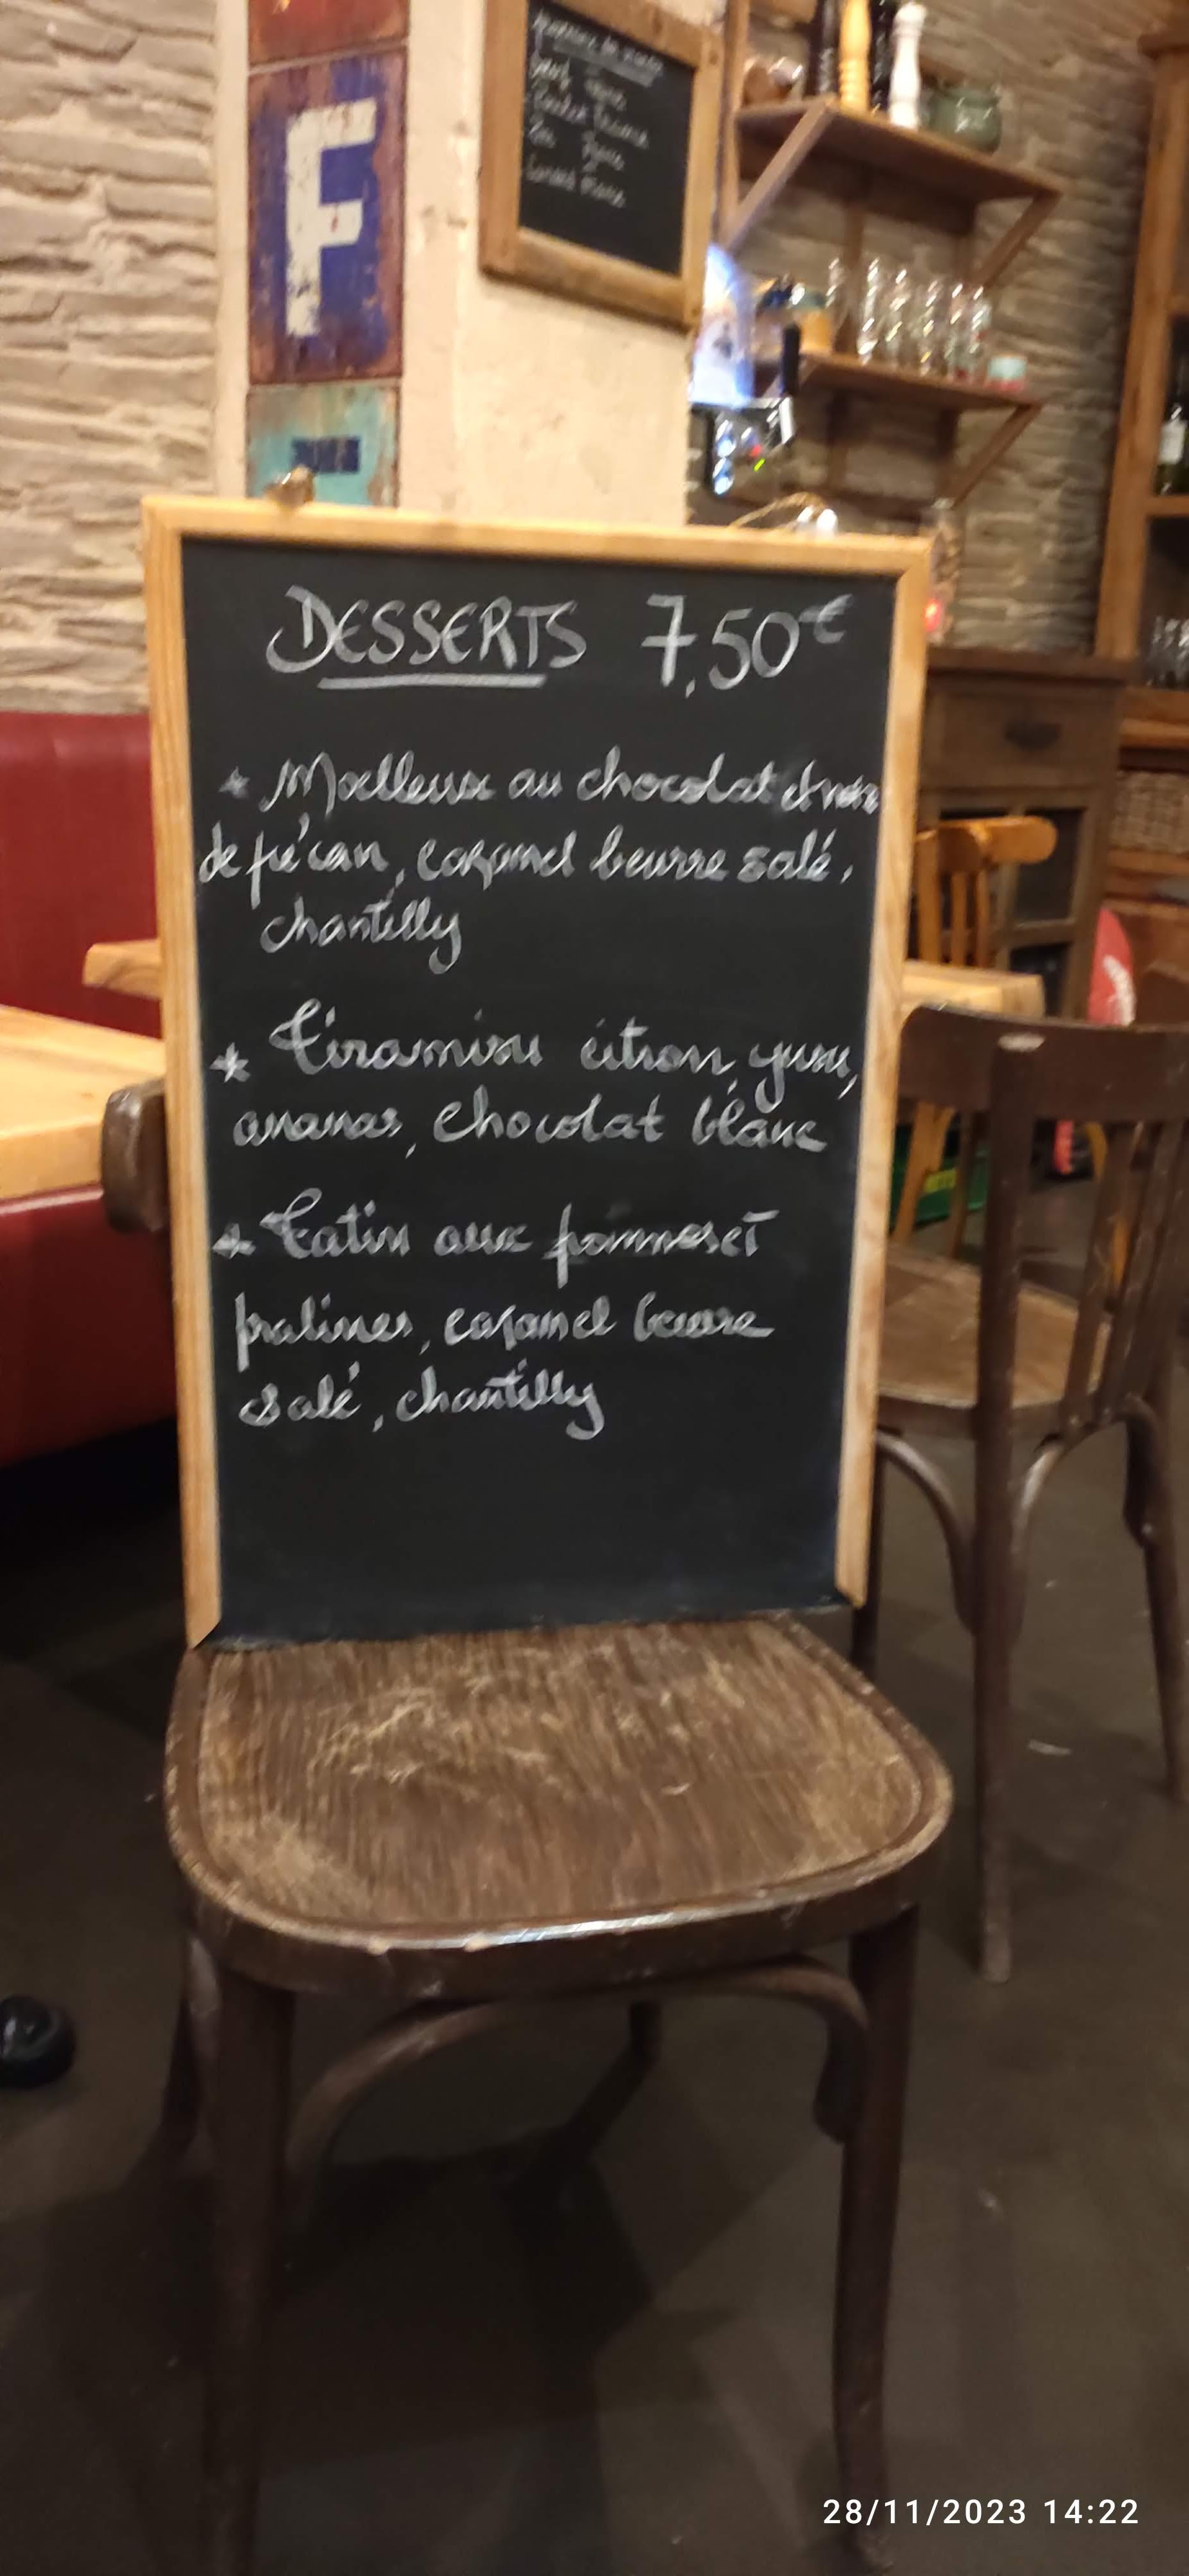 F
DESSERTS 7,50€
* Moelleux au chocolat et noix
de pécan, caramel beurre salé,
chantilly
* Tiramisu citron, yuzu,
ananas, chocolat blanc
* Tatin aux pommes et
pralines, caramel beurre
salé, chantilly
28/11/2023 14:22